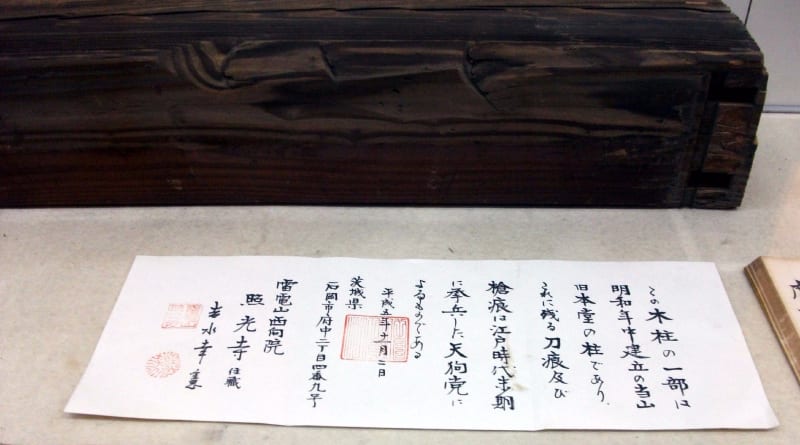 この木柱の一部は
明和年中建立の当山
旧本堂の柱であり、
それに残る刀痕及び
槍痕は江戸時代末期
に挙兵した天狗党に
よるものである
平成五年十一月二日
茨城県
石岡市府中二丁目四番九号
雷電山西向院
照光寺住職